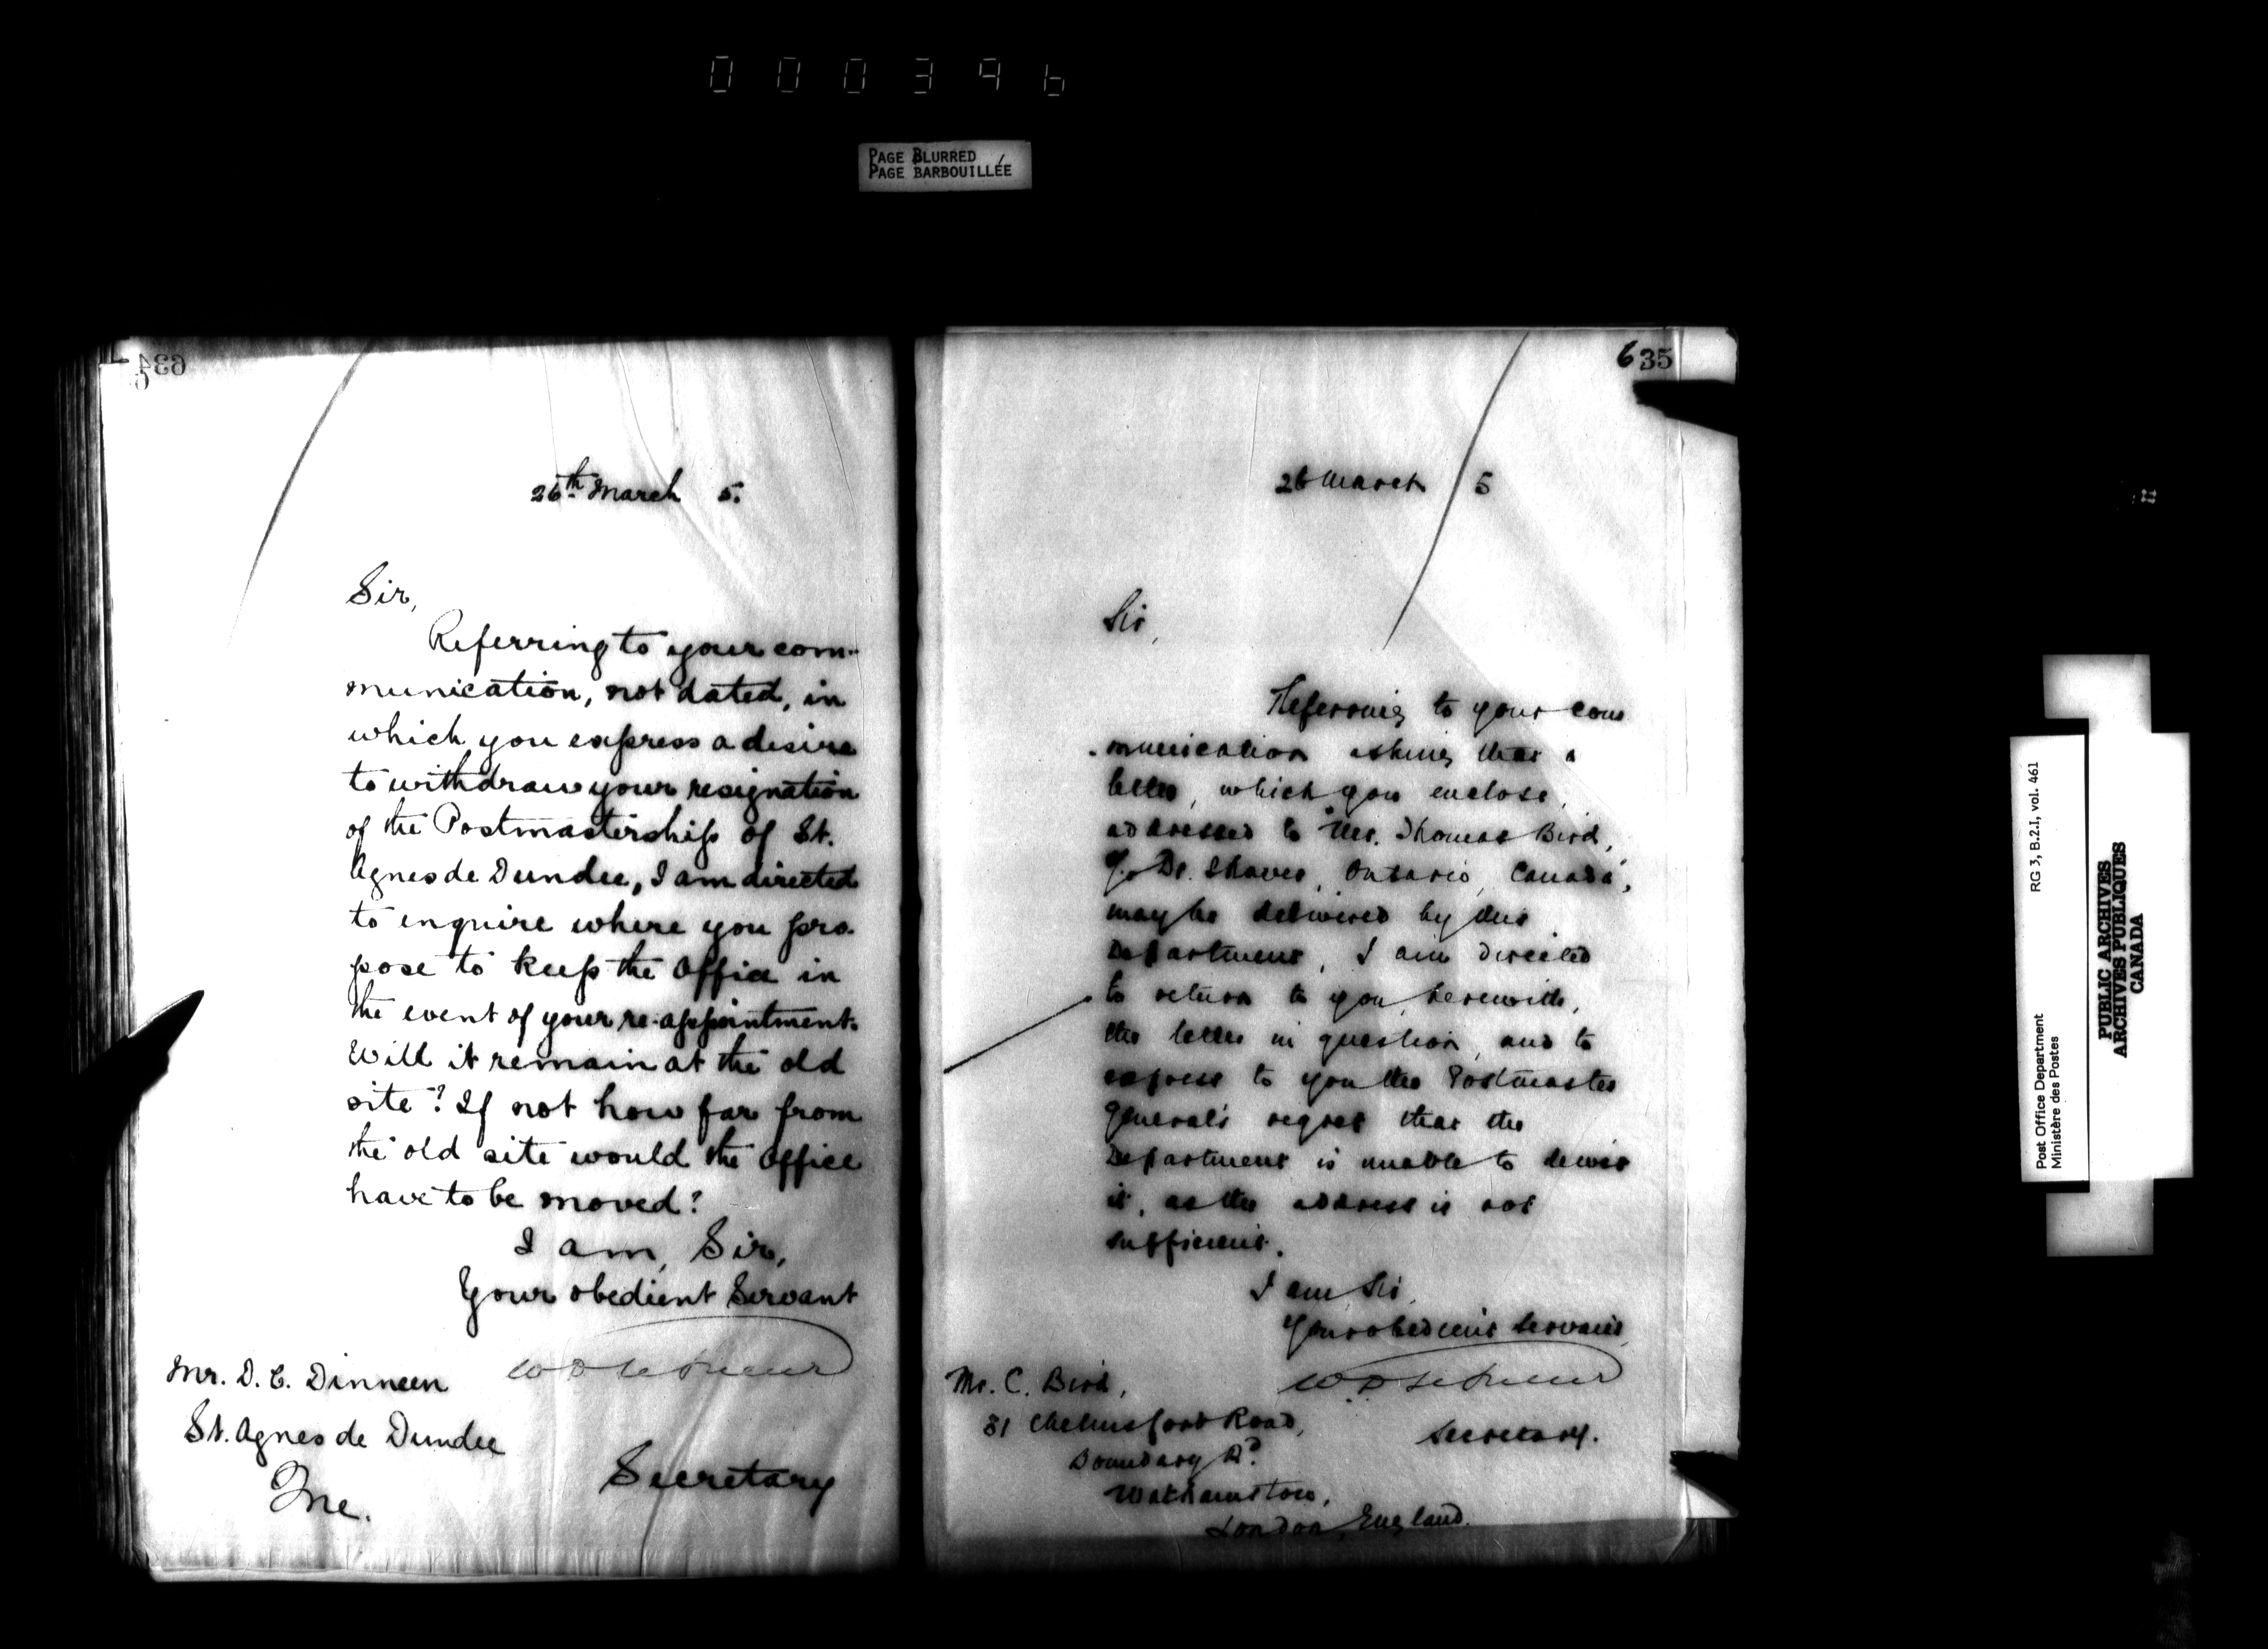 000396
PAGE BLURRED
PAGE BARBOUILLÉE
634
26th March 5.
Sir,
Referring to your com-
munication, not dated, in
which you express a desire
to withdraw your resignation
of the Postmastership of St.
Agnes de Dundee, I am directed
to enquire where you pro-
pose to keep the Office in
the event of your re-appointment.
Will it remain at the old
site? If not how far from
the old site would the Office
have to be moved?
I am, Sir,
Your obedient Servant
W D LeSueur
Mr. D. C. Dinneen
St. Agnes de Dundee
Que.
Secretary
635
26 March 5
Sir,
Referring to your com
-munication asking that a
letter, which you enclose,
addressed to Mr. Thomas Bird,
c/o Dr. Shaver, Ontario, Canada,
may be delivered by this
Department, I am directed
to return to you, herewith,
the letter in question, and to
express to you the Postmaster
General's regret that the
Department is unable to deliver
it, as the address is not
sufficient.
I am Sir,
Your obedient Servant,
W D LeSueur
Secretary.
Mr. C. Bird,
31 Chelmsford Road,
Boundary Rd.
Walthamstow,
London, England.
Post Office Department
Ministère des Postes
RG 3, B.2.I, vol. 461
PUBLIC ARCHIVES
ARCHIVES PUBLIQUES
CANADA